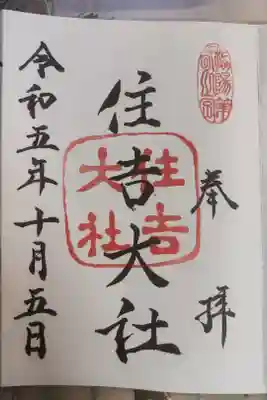 奉拝
住吉大社
住吉大社
令和五年十月五日